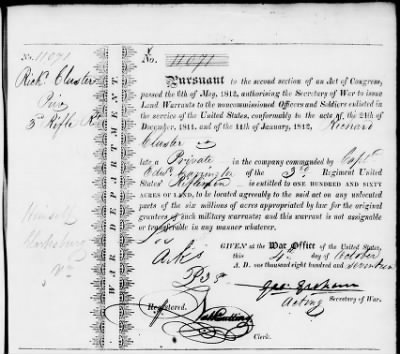 No. 11071
Richd. Cluster
Priv.
3d Rifle Rt.
Himself
Clarksburg
Va
WAR DEPARTMENT
No. 11071
Pursuant to the second section of an Act of Congress,
passed the 6th of May, 1812, authorising the Secretary of War to issue
Land Warrants to the noncommissioned Officers and Soldiers enlisted
in the service of the United States, conformably to the acts of the 24th of
December, 1811, and of the 11th of January, 1812, Richard
Cluster
late a Private in the company commanded by Capt.
Carrington of the 3rd Regiment United
States' Riflemen is entitled to ONE HUNDRED AND SIXTY
ACRES OF LAND, to be located agreeably to the said act on any unlocated
parts of the six millions of acres appropriated by law for the original
grantees of such military warrants; and this warrant is not assignable
or transferable in any manner whatever.
GIVEN at the War Office of the United States,
this 4th day of October
A. D. one thousand eight hundred and seventeen
Arks
Geo: Graham
Acting Secretary of War.
Registered.
Clerk.